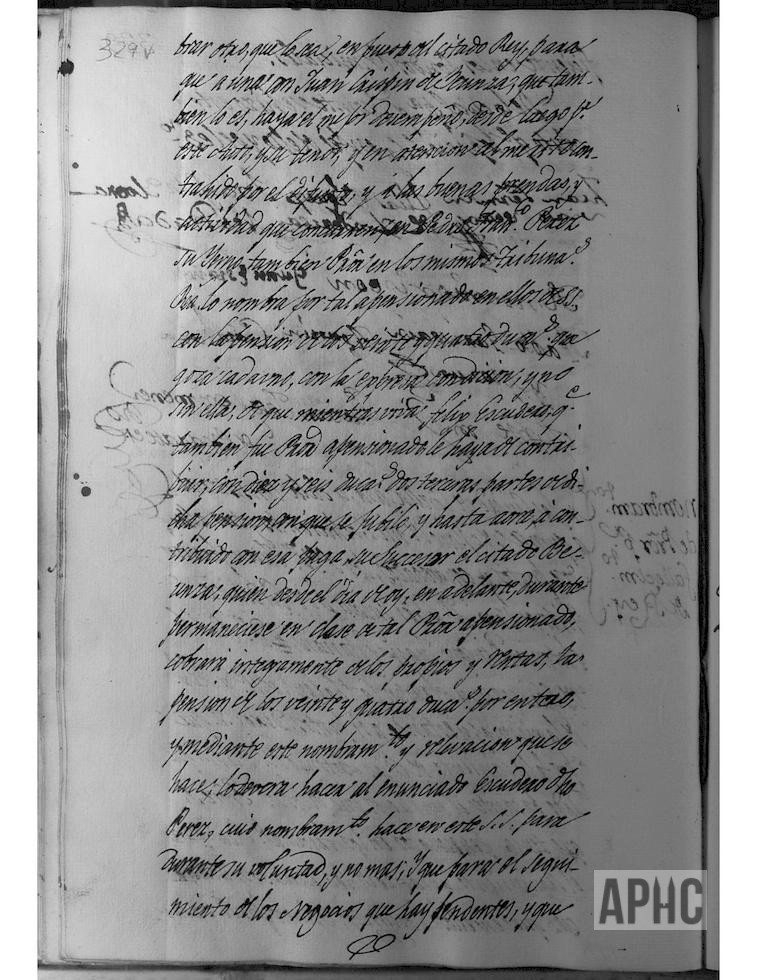 329v
brar otro, que lo sea, en puesto del citado Rey, para
que a una con Juan Crispin de Beunza, que tam-
bien lo es, haya el mejor desempeño, desde luego p.r
este efecto, y su tenor, y en atencion al merito con-
trahido por el difunto, y a las buenas prendas, y
actividad que concurren en Pedro Fran.co Perez
su Yerno, tambien Prôr en los mismos Tribuna.s
Rea.s lo nombra por tal apensionado en ellos de S.S.
con la pension de los veinte y quatro duca.s que
goza cada uno, con la expresa condicion, y no
sin ella, de que mientras viva Felix Escudero, q.e
tambien fue Prôr apensionado le haya de contri-
buir, con diez y seis duca.s dos terceras partes de di-
cha pension, con que se jubiló, y hasta aora á con-
tribuido con esa paga, su successor el citado Be-
unza; quien desde el dia de oy, en adelante, durante
permaneciese en clase de tal Prôr apensionado,
cobrará integramente de los propios y Rentas, la
pension de los veinte y quatro duca.s por entero,
y mediante este nombram.to y relevacion que se
hace, lo deverá hacer al enunciado Escudero dho
Perez, cuio nombram.to hace en este S.S. para
durante su voluntad, y no mas; Y que para el segui-
miento de los Negocios que hay pendentes, y que
APHC